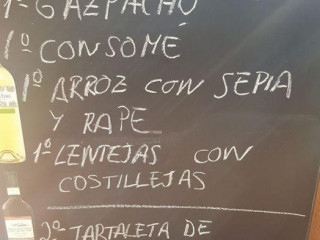 1º GAZPACHO
1º CONSOMÉ
1º ARROZ CON SEPIA
Y RAPE
1º LENTEJAS CON
COSTILLEJAS
2º TARTALETA DE